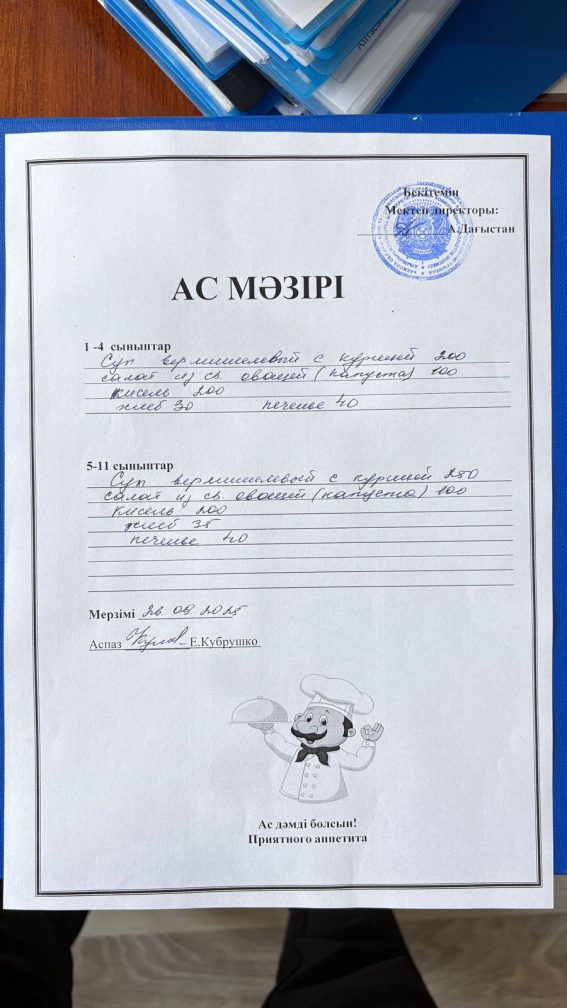 Бекітемін
Мектеп директоры:
А.Дағыстан
АС МӘЗІРІ
1 -4 сыныптар
Суп вермишелевый с курицей 200
салат из св. овощей (капуста) 100
кисель 200
хлеб 30 печенье 40
5-11 сыныптар
Суп вермишелевый с курицей 250
салат из св. овощей (капуста) 100
Кисель 200
хлеб 35
печенье 40
Мерзімі 26. 09. 2025
Аспаз Е.Кубрушко
Ас дәмді болсын!
Приятного аппетита